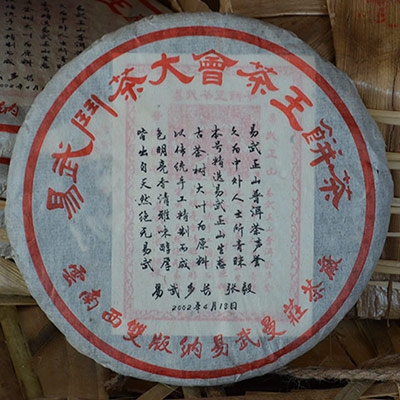 易武鬥茶大會茶王餅茶
易武正山普洱茶声誉
久为中外人士所青睐
本号精选易武正山生态
古茶树大叶为原料
以传统手工精制而成
色明亮香清雅味醇厚
皆出自天然绝无易武
易武乡长 张毅
2002年4月18日
雲南西雙版納易武曼莊茶廠